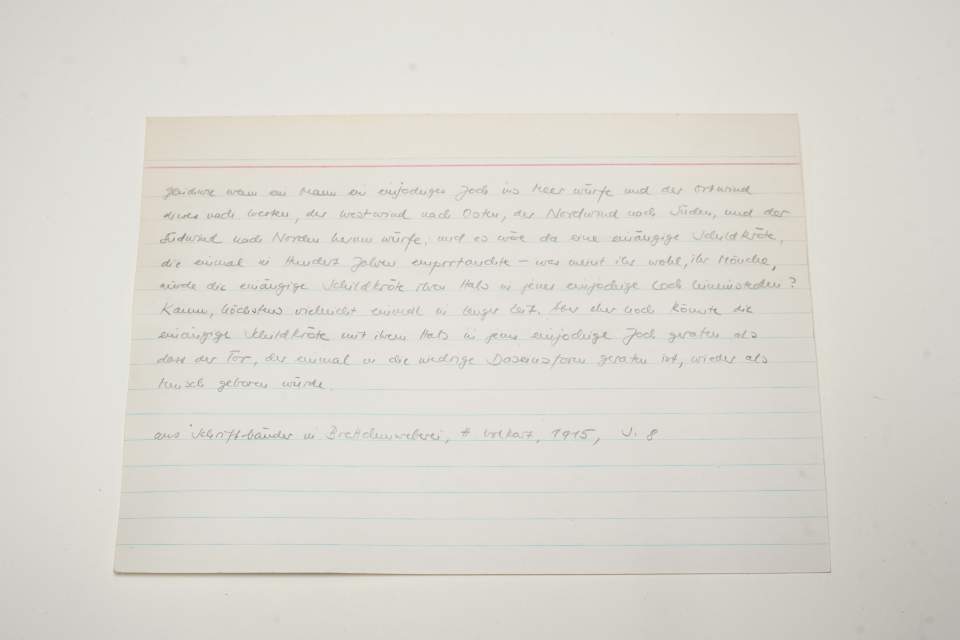 wenn ein Mann ein einjochiges Joch ins Meer würfe und der Ostwind
dieses nach Westen, der Westwind nach Osten, der Nordwind nach Süden, und der
Südwind nach Norden herum würfe, und es wäre da eine einäugige Schildkröte,
die einmal in Hundert Jahren emportauchte – was meint ihr wohl, ihr Mönche,
würde die einäugige Schildkröte ihren Hals in jenes einjochige Loch hineinstecken?
Kaum, höchstens vielleicht einmal in langer Zeit. Aber eher noch könnte die
einäugige Schildkröte mit ihrem Hals in jenes einjochige Joch geraten als
dass der Tor, der einmal in die niedrige Daseinsform geraten ist, wieder als
Mensch geboren würde.
aus Schriftbänder in Brettchenweberei, 1915, S. 8